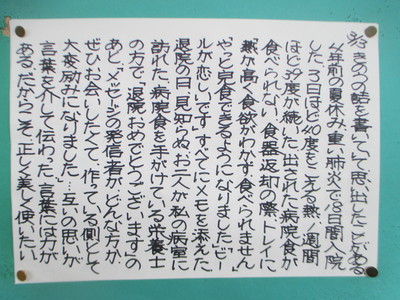 きのうの話を書いていて思い出したことがある
4年前の夏休み、重い肺炎で8日間入院
した。3日ほど40度をこえる熱、1週間
ほど39度が続いた。出された病院食が
食べられない。食器返却の際、トレイに
「熱が高く食欲がわかず、食べられません」
「やっと完食できるようになりました」「ビー
ルが恋しいです」すべてにメモを添えた
退院の日、見知らぬお二人が私の病室に
訪れた。病院食を手がけている栄養士
の方で「退院おめでとうございます」の
あと、「メッセージの発信者がどんな方か、
ぜひお会いしたくて。作っている側として
大変励みになりました」…互いの思いが
言葉を介して伝わった。言葉には力が
ある。だからこそ、正しく美しく使いたい